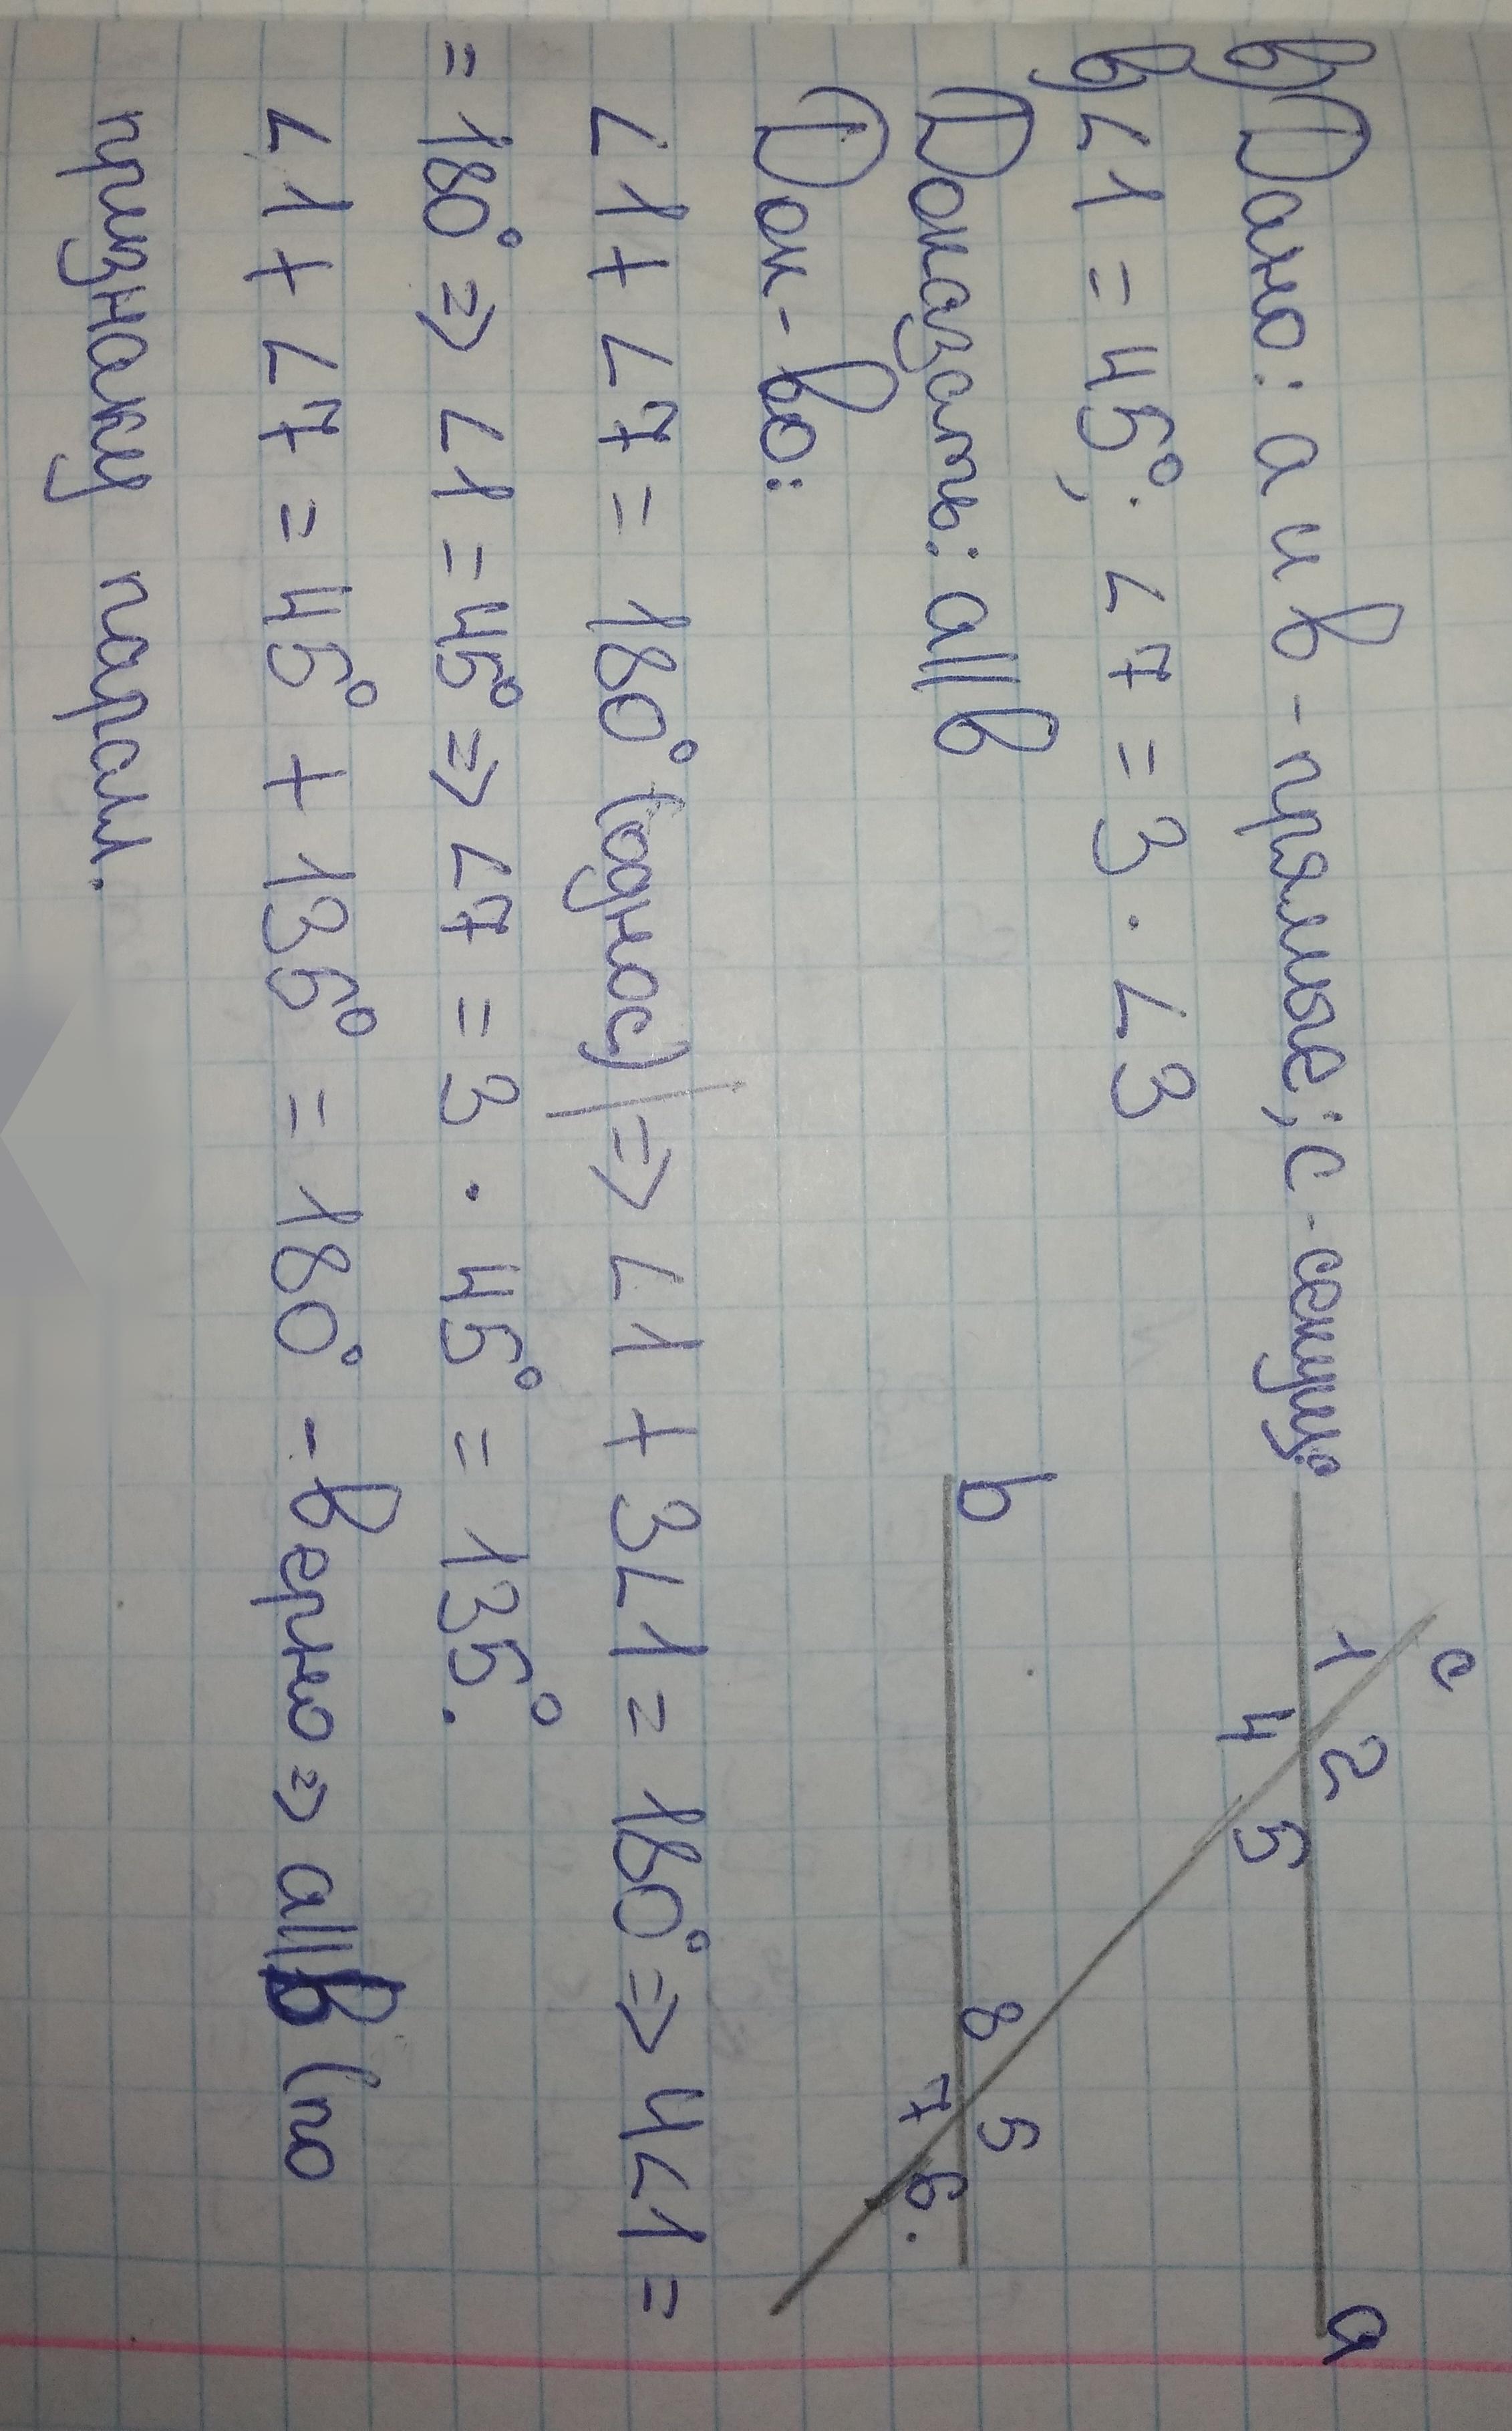 в) Дано: а и в - прямые; с - секущ.
в) ∠1 = 45°; ∠7 = 3 · ∠3
Доказать: а||в
Док-во:
∠1 + ∠7 = 180° (однос) => ∠1 + 3∠1 = 180° => 4∠1 =
= 180° => ∠1 = 45° => ∠7 = 3 · 45° = 135°.
∠1 + ∠7 = 45° + 135° = 180° - верно => а||в (по
признаку парал.
c
1 2
4 5
a
b
8 5
7 6.